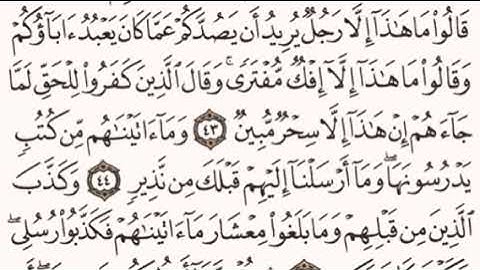 قَالُوا۟ مَا هَـٰذَآ إِلَّا رَجُلٌ يُرِيدُ أَن يَصُدَّكُمْ عَمَّا كَانَ يَعْبُدُ ءَابَآؤُكُمْ
وَقَالُوا۟ مَا هَـٰذَآ إِلَّآ إِفْكٌ مُّفْتَرًى ۚ وَقَالَ ٱلَّذِينَ كَفَرُوا۟ لِلْحَقِّ لَمَّا
جَآءَهُمْ إِنْ هَـٰذَآ إِلَّا سِحْرٌ مُّبِينٌ ٤٣ وَمَآ ءَاتَيْنَـٰهُم مِّن كُتُبٍ
يَدْرُسُونَهَا ۖ وَمَآ أَرْسَلْنَآ إِلَيْهِمْ قَبْلَكَ مِن نَّذِيرٍ ٤٤ وَكَذَّبَ
ٱلَّذِينَ مِن قَبْلِهِمْ وَمَا بَلَغُوا۟ مِعْشَارَ مَآ ءَاتَيْنَـٰهُمْ فَكَذَّبُوا۟ رُسُلِى ۖ